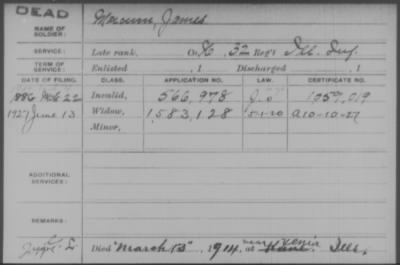 DEAD
NAME OF SOLDIER: Mercum, James
SERVICE: Late rank, Co. K, 32 Reg't Ill. Inf.
TERM OF SERVICE: Enlisted , 1 Discharged , 1
DATE OF FILING. CLASS. APPLICATION NO. LAW. CERTIFICATE NO.
1886 Feb 22 Invalid, 566,978 1057,019
1927 June 13 Widow, 1,583,128 5-1-20 A 10-10-27
Minor,
ADDITIONAL SERVICES:
REMARKS:
Died March 13, 1914, at Ills.